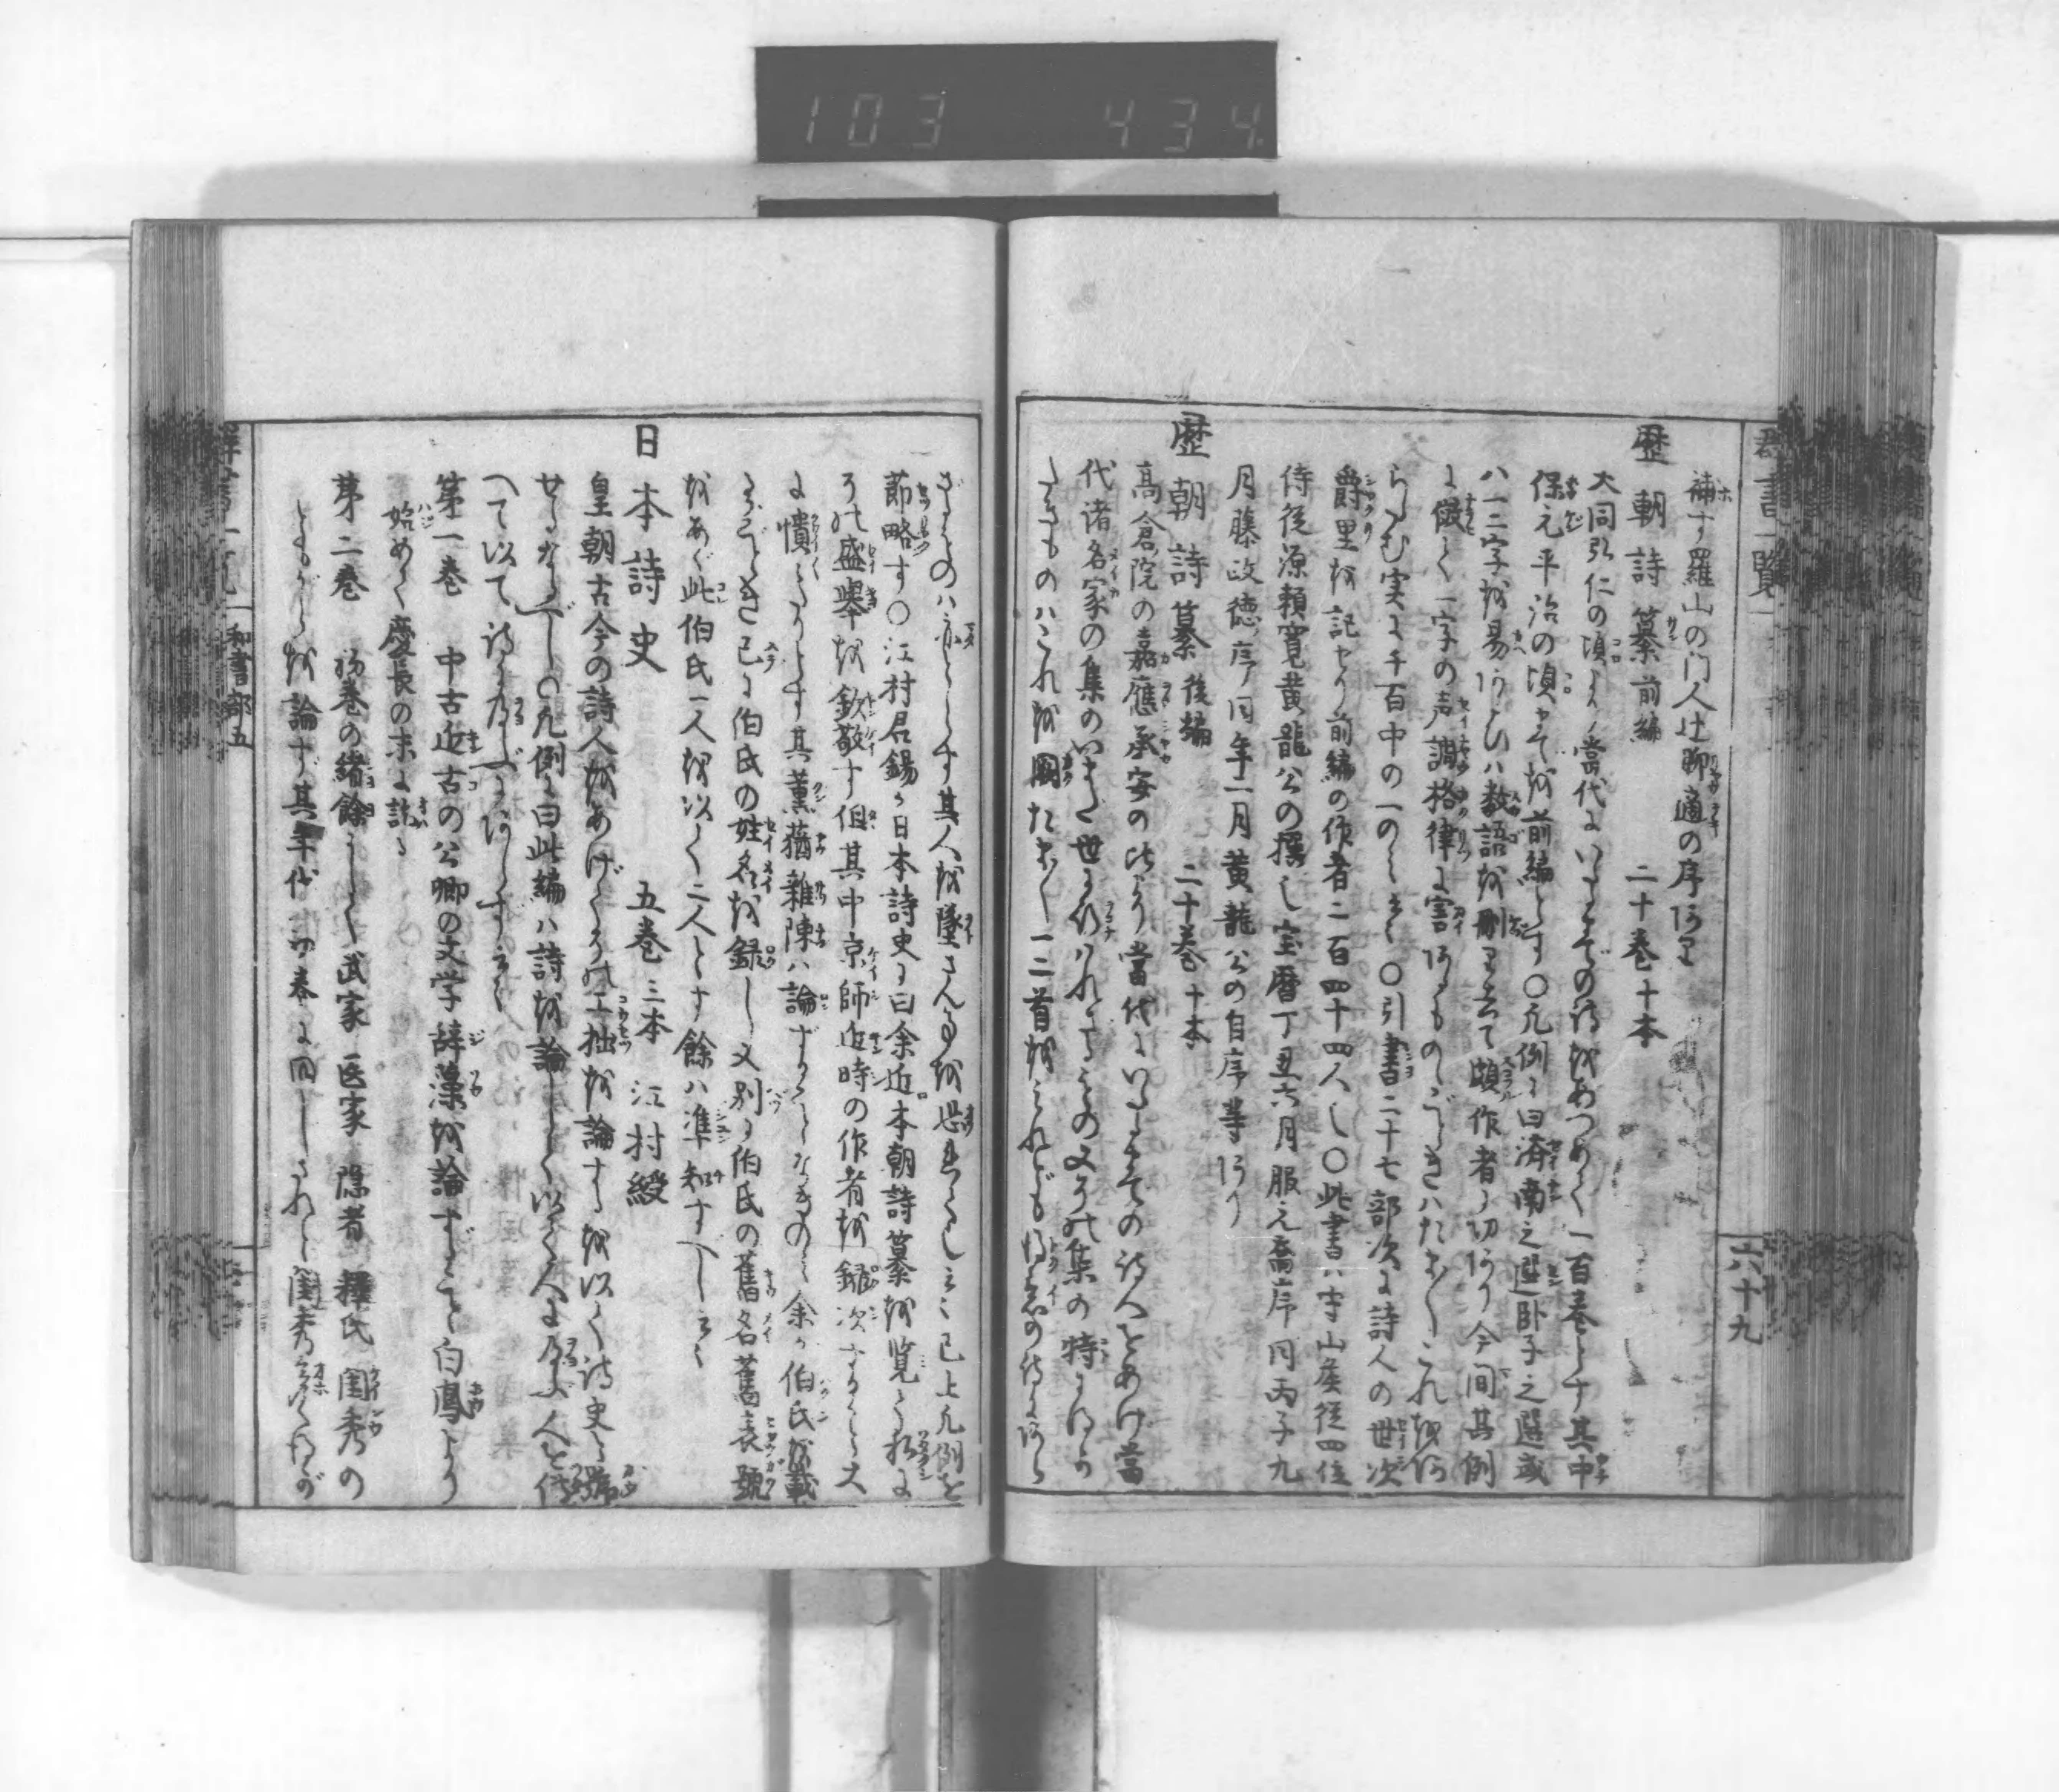 103 434
群書一覧
六十九
補す羅山の門人辻聊適の序あり
歴朝詩纂前編 二十巻十本
大同弘仁の頃より當代にいたるまでの詩をあつめて一百巻とす其中
保元平治の頃までを前編とす〇凡例に曰済南之選臥子之選或
ハ一二字を易あるひハ数語を刪て頗作者に功あり今間其例
に倣て一字の声調格律に害あるもののごときハたま〱これを
らたむ実に千百中の一のミと〇引書二十七部次に詩人の世次
爵里を記せり前編の作者二百四十四人〇此書ハ守山侯従四位
侍従源頼寛黄龍公の撰し宝暦丁丑六月服元喬序同丙子九
月藤政徳序同年一月黄龍公の自序等あり
歴朝詩纂後編 二十巻十本
高倉院の嘉應承安の比より當代にいたるまての詩人をあけ當
代諸名家の集のいまた世に行ハれさるもの又その集の特に
たるものハこれを闕たま〱一二首を
さるものハ亦しるす其人を墜さん事を恐れてし云々已上凡例を
節略す〇江村君錫か日本詩史に曰余近本朝詩纂を覧て私に
その盛挙を欽敬す但其中京師近時の作者を録次すること大
に憒々たりとす其薫蕕雑陳ハ論ずることなきのミ余か伯氏を載
るごとき已に伯氏の姓名を録し又別に伯氏の舊名舊表號
をあぐ此伯氏一人を以て二人とす餘ハ準知すへし云々
日本詩史 五巻三本 江村綬
皇朝古今の詩人をあげてその工拙を論するを以て詩史と號
せるなるべし〇凡例に曰此編ハ詩を論して以て人に及ぶ人を傳
へて以て詩に及ぶにあらずと云々
第一巻 中古近古の公卿の文学辞藻を論ずること白鳳より
始めて慶長の末に訖る
第二巻 初巻の緒餘にして武家 医家 隠者 釋氏 閨秀の
ともがらを論ず其年代初巻に同しされと閨秀
群書一覧 和書部五